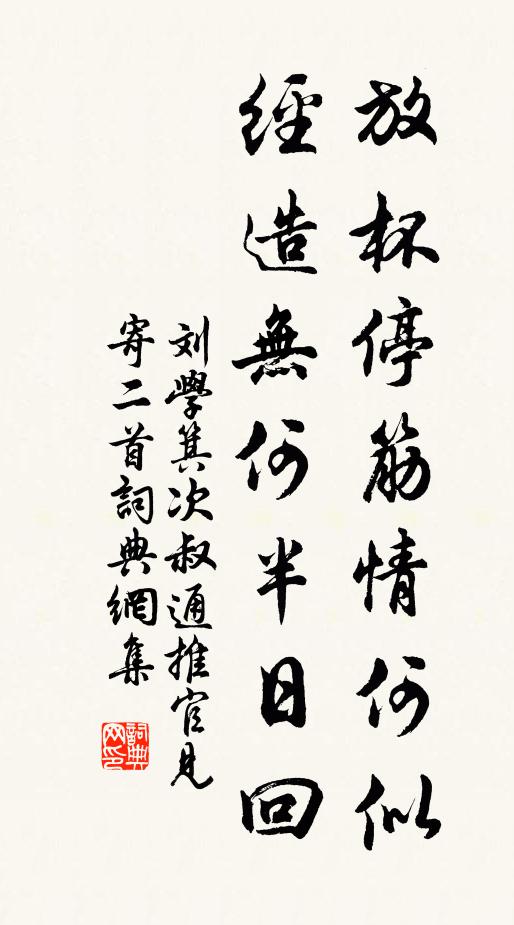 放杯停筋情何似
經造無何半日回
刘學箕次叔通推官見
寄二首詞典網集
詞典網印